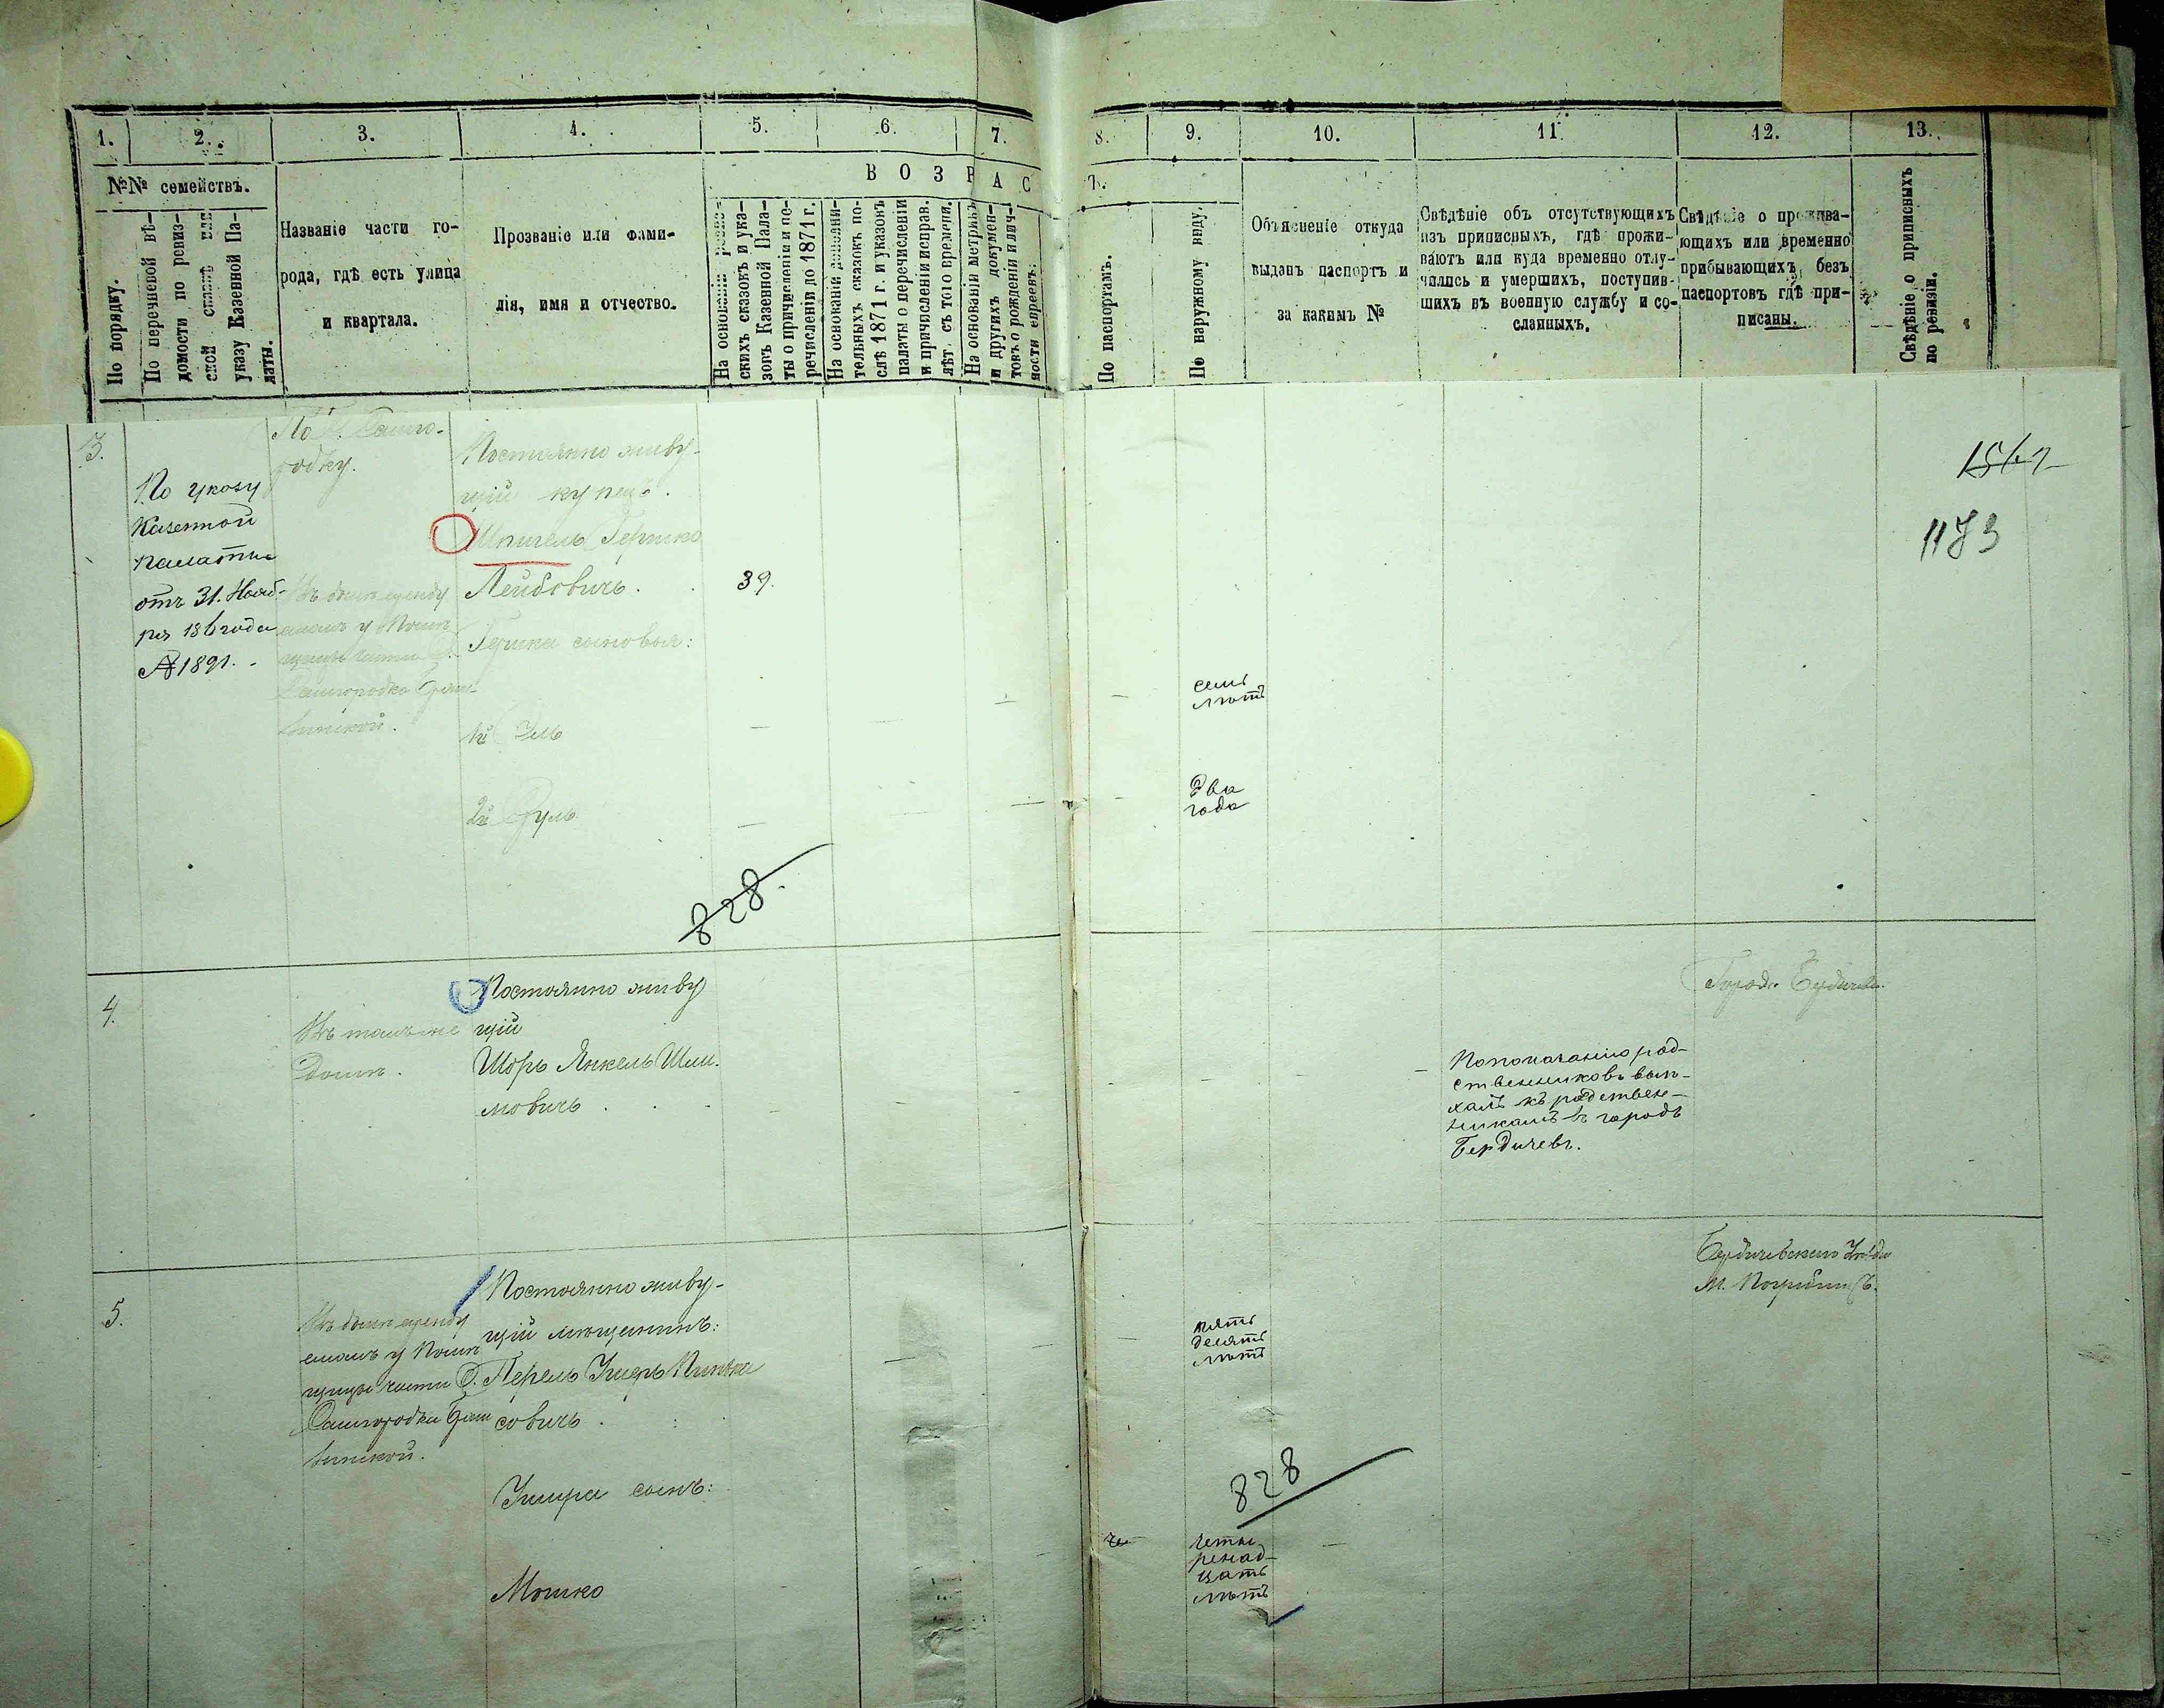 1.
2.
3.
4.
5.
6.
7.
8.
9.
10.
11.
12.
13.
№№ семействъ.
В О З Р А С Т.
По порядку.
По перечневой вѣ-
домости по ревиз-
ской сказкѣ или
указу Казенной Па-
латы.
Названіе части го-
рода, гдѣ есть улица
и квартала.
Прозваніе или фами-
лія, имя и отчество.
На основаніи ревиз-
скихъ сказокъ и ука-
зовъ Казенной Пала-
ты о причисленіи и пе-
речисленіи до 1871 г.
На основаніи дополни-
тельныхъ сказокъ по-
слѣ 1871 г. и указовъ
палаты о перечисленіи
и причисленіи исправ.
лѣт. съ того времени.
На основаніи метрикъ
и другихъ докумен-
товъ о рожденіи и лич-
ности евреевъ.
По паспортамъ.
По наружному виду.
Объясненіе откуда
выданъ паспортъ и
за какимъ №
Свѣдѣніе объ отсутствующихъ
изъ приписныхъ, гдѣ прожи-
ваютъ или куда временно отлу-
чились и умершихъ, поступив-
шихъ въ военную службу и со-
сланныхъ.
Свѣдѣніе о прожива-
ющихъ или временно
прибывающихъ, безъ
паспортовъ гдѣ при-
писаны.
Свѣдѣніе о приписныхъ
по ревизіи.
3.
По указу
Казенной
палаты
отъ 31. Нояб-
ря 186 года
№ 1891.
городку.
Въ домѣ аренду
емомъ у Помѣ
щицы части С.
Самгородка
Постоянно живу-
щій купецъ.
Шпигель Гершко
Лейбовичъ.
39.
Гершка сыновья:
1й
семь
лѣтъ
2й
два
года
828.
1173
4.
Въ томъ же
домѣ.
Постоянно живу
щій
Шоръ Янкель Шли.
мовичъ.
По показанію род-
ственниковъ выѣ-
халъ къ родствен-
никамъ въ городъ
Бердичевъ.
Город. Бердичев.
5.
Въ домѣ аренду
емомъ у Помѣ
щицы части С.
Самгородка
Постоянно живу-
щій мѣщанинъ:
Перель Умеръ Пинка
совичъ.
пять
десятъ
лѣтъ
Бердичевскаго Уѣзда
828
сынъ:
Мошко
че
четы
ренад-
цать
лѣтъ